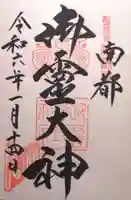 南都
御靈大神
令和六年一月十四日